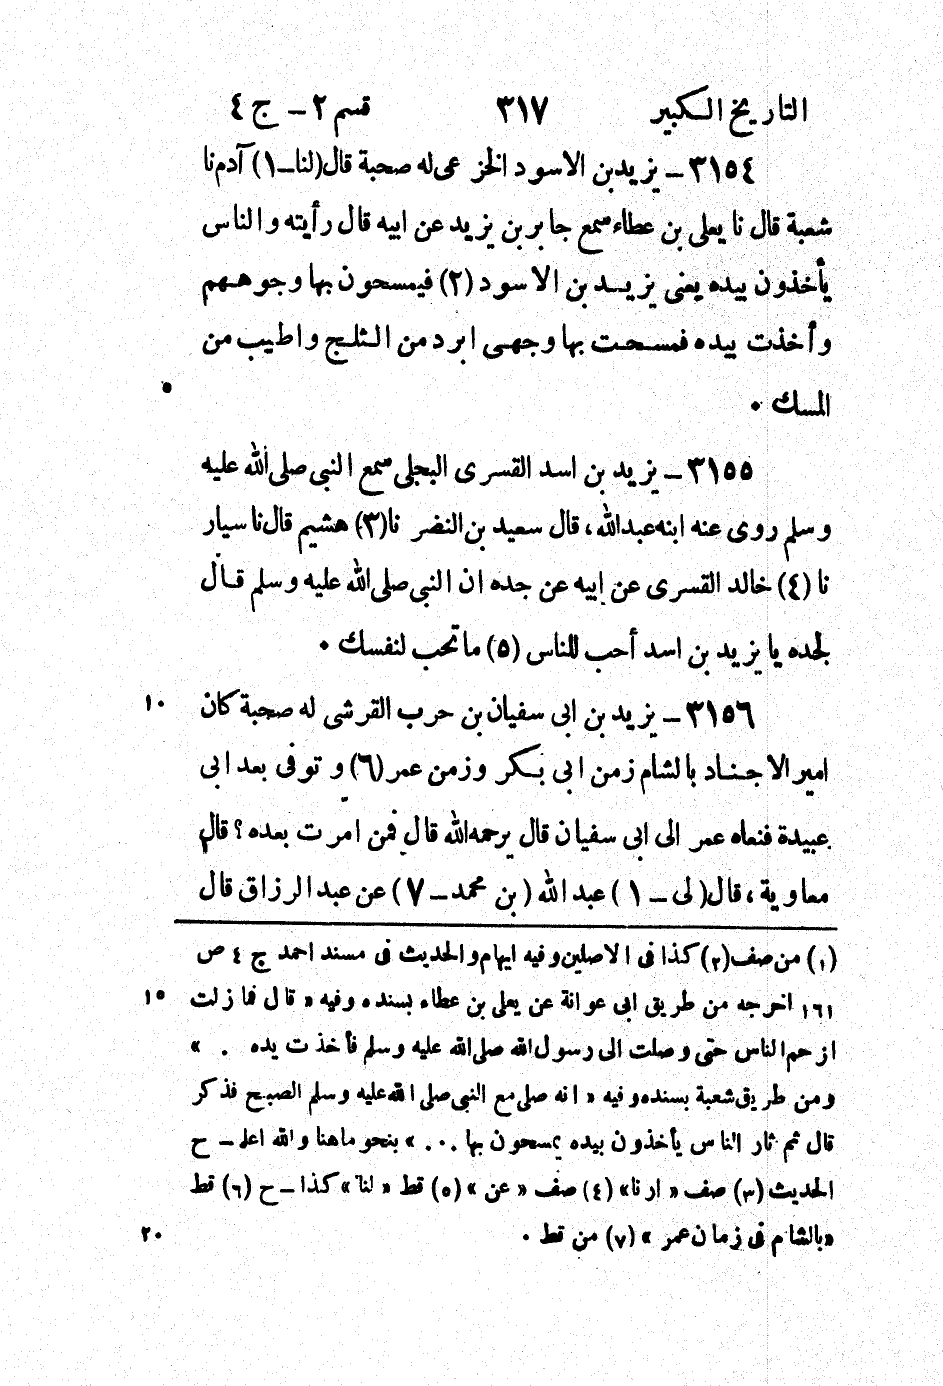 التاريخ الكبير ٣١٧ قسم ٢ – ج ٤
٣١٥٤ – يزيد بن الاسود الخزاعى له صحبة قال (لنا – ١) آدم نا
شعبة قال نا يعلى بن عطاء سمع جابر بن يزيد عن ابيه قال رأيته والناس
يأخذون بيده يعنى يزيد بن الاسود (٢) فيمسحون بها وجوههم
وأخذت بيده فمسحت بها وجهى ابرد من الثلج واطيب من
المسك ٠ ٥
٣١٥٥ – يزيد بن اسد القسرى البجلى سمع النبى صلى الله عليه
وسلم روى عنه ابنه عبدالله، قال سعيد بن النضر نا (٣) هشيم قال نا سيار
نا (٤) خالد القسرى عن ابيه عن جده ان النبى صلى الله عليه وسلم قال
لجده يا يزيد بن اسد أحب للناس (٥) ما تحب لنفسك ٠
٣١٥٦ – يزيد بن ابى سفيان بن حرب القرشى له صحبة كان ١٠
امير الاجناد بالشام زمن ابى بكر وزمن عمر (٦) و توفى بعد ابى
عبيدة فنعاه عمر الى ابى سفيان قال يرحمه الله قال فمن امرت بعده؟ قال
معاوية، قال (لى – ١) عبد الله (بن محمد – ٧) عن عبد الرزاق قال
(١) من صف (٢) كذا فى الاصلين وفيه ايهام والحديث فى مسند احمد ج ٤ ص
١٦١ اخرجه من طريق ابى عوانة عن يعلى بن عطاء بسنده وفيه « قال فما زلت ١٥
ازحم الناس حتى وصلت الى رسول الله صلى الله عليه وسلم فأخذت يده . »
ومن طريق شعبة بسنده وفيه « انه صلى مع النبى صلى الله عليه وسلم الصبح فذكر
قال ثم ثار الناس يأخذون بيده يمسحون بها . ٠ . » بنحو ما هنا والله اعلم – ح
الحديث (٣) صف « ارنا » (٤) صف « عن » (٥) قط « لنا » كذا – ح (٦) قط
« بالشام فى زمان عمر » (٧) من قط ٠ ٢٠